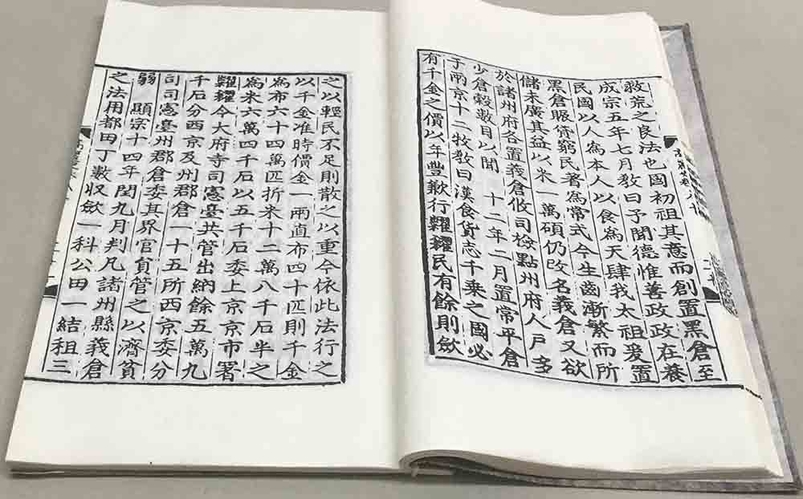 救荒之良法也國初祖其意而創置黑倉至
成宗五年七月敎曰予聞德惟善政政在養
民國以人為本人以食為天肆我太祖爰置
黑倉賑貸窮民著為常式今生齒漸繁而所
儲未廣其益以米一萬碩仍改名義倉又欲
於諸州府各置義倉攸司檢點州府人戶多
少倉穀數目以聞 十二年二月置常平倉
于兩京十二牧敎曰漢食貨志千乘之國必
有千金之價以年豐歉行糶糴民有餘則歛
之以輕民不足則散之以重今依此法行之
以千金准時價金一兩直布四十匹則千金
為布六十四萬匹折米十二萬八千石半之
為米六萬四千石以五千石委上京京市署
糶糴令大府寺司憲臺共管出納餘五萬九
千石分西京及州郡倉一十五所西京委分
司司憲臺州郡倉委其界官員管之以濟貧
弱 顯宗十四年閏九月判凡諸州縣義倉
之法用都田丁數收歛一科公田一結租三